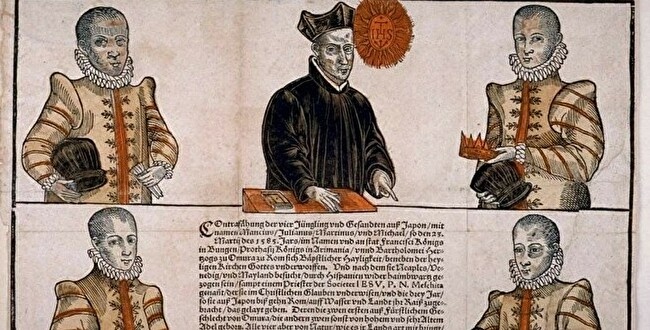 IHS
COntrafähung der vier Jüngling vnd Gesandten auß Japon/ mit
namen Mancius/ Julianus/ Martinus/ vnd Michael/ so den 23.
Martij des 1585. Jars/ im Namen vnd an stat Francisci Königs
in Bungen/ Prothasij Königs in Arimania/ vnnd Bartholomei Her-
zogs zu Omura zu Rom sich Bäpstlicher Hayligkeit/ beneben der hey-
ligen Kirchen Gottes vnderworffen. Vnd nach dem sie Neaples/ Ve-
nedig/ vnd Mayland besucht/ durch Hispanien wider haimbwartz ge-
zogen/ sampt einem Priester der Societet IESV, P. N. Meschita
genañt/ der sie im Christlichen Glauben vnderwisen/ vnd die drey Jar/
so sie auß Japon biß gehn Rom/ auff Wasser vnd Landt jhr Raiß zuge-
bracht/ das gelayt geben. Deren die zwen ersten auß Fürstlichem Ge-
schlecht von Omura/ die andern zwen sonst von hohem vnd sehr Altem
Adel geborn. Alle vier aber von Natur/ wie es in Lands art mit bringt/